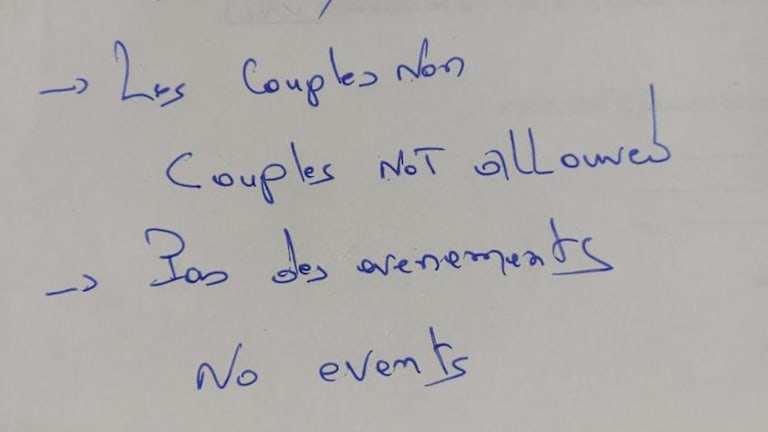 → Les Couples Non
Couples NOT allowed
→ Pas des evenements
No events